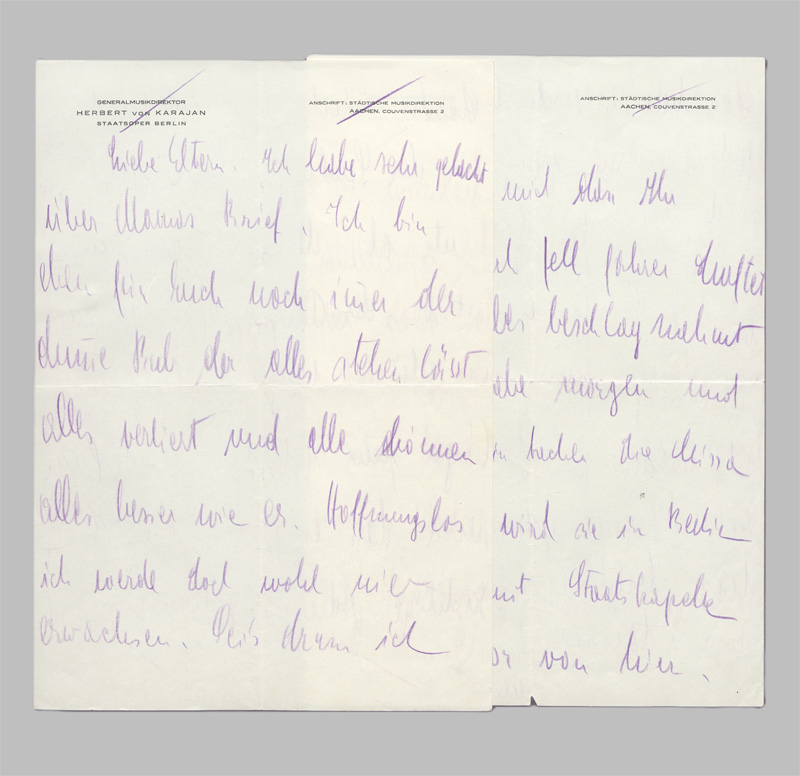 GENERALMUSIKDIREKTOR
HERBERT VON KARAJAN
STAATSOPER BERLIN
ANSCHRIFT: STÄDTISCHE MUSIKDIREKTION
AACHEN, COUVENSTRASSE 2
Liebe Eltern. Ich habe sehr gelacht
über Mamas Brief. Ich bin
eben für Euch noch immer der
dumme Bub der alles stehen lässt
alles verliert und alle können
alles besser wie er. Hoffnungslos
ich werde doch wohl nie
erwachsen. Sei's drum ich
ANSCHRIFT: STÄDTISCHE MUSIKDIREKTION
AACHEN, COUVENSTRASSE 2
und
fell
beschlagnahmt
morgen und
die Missa
wird sie in Berlin
mit Staatskapelle
von hier.